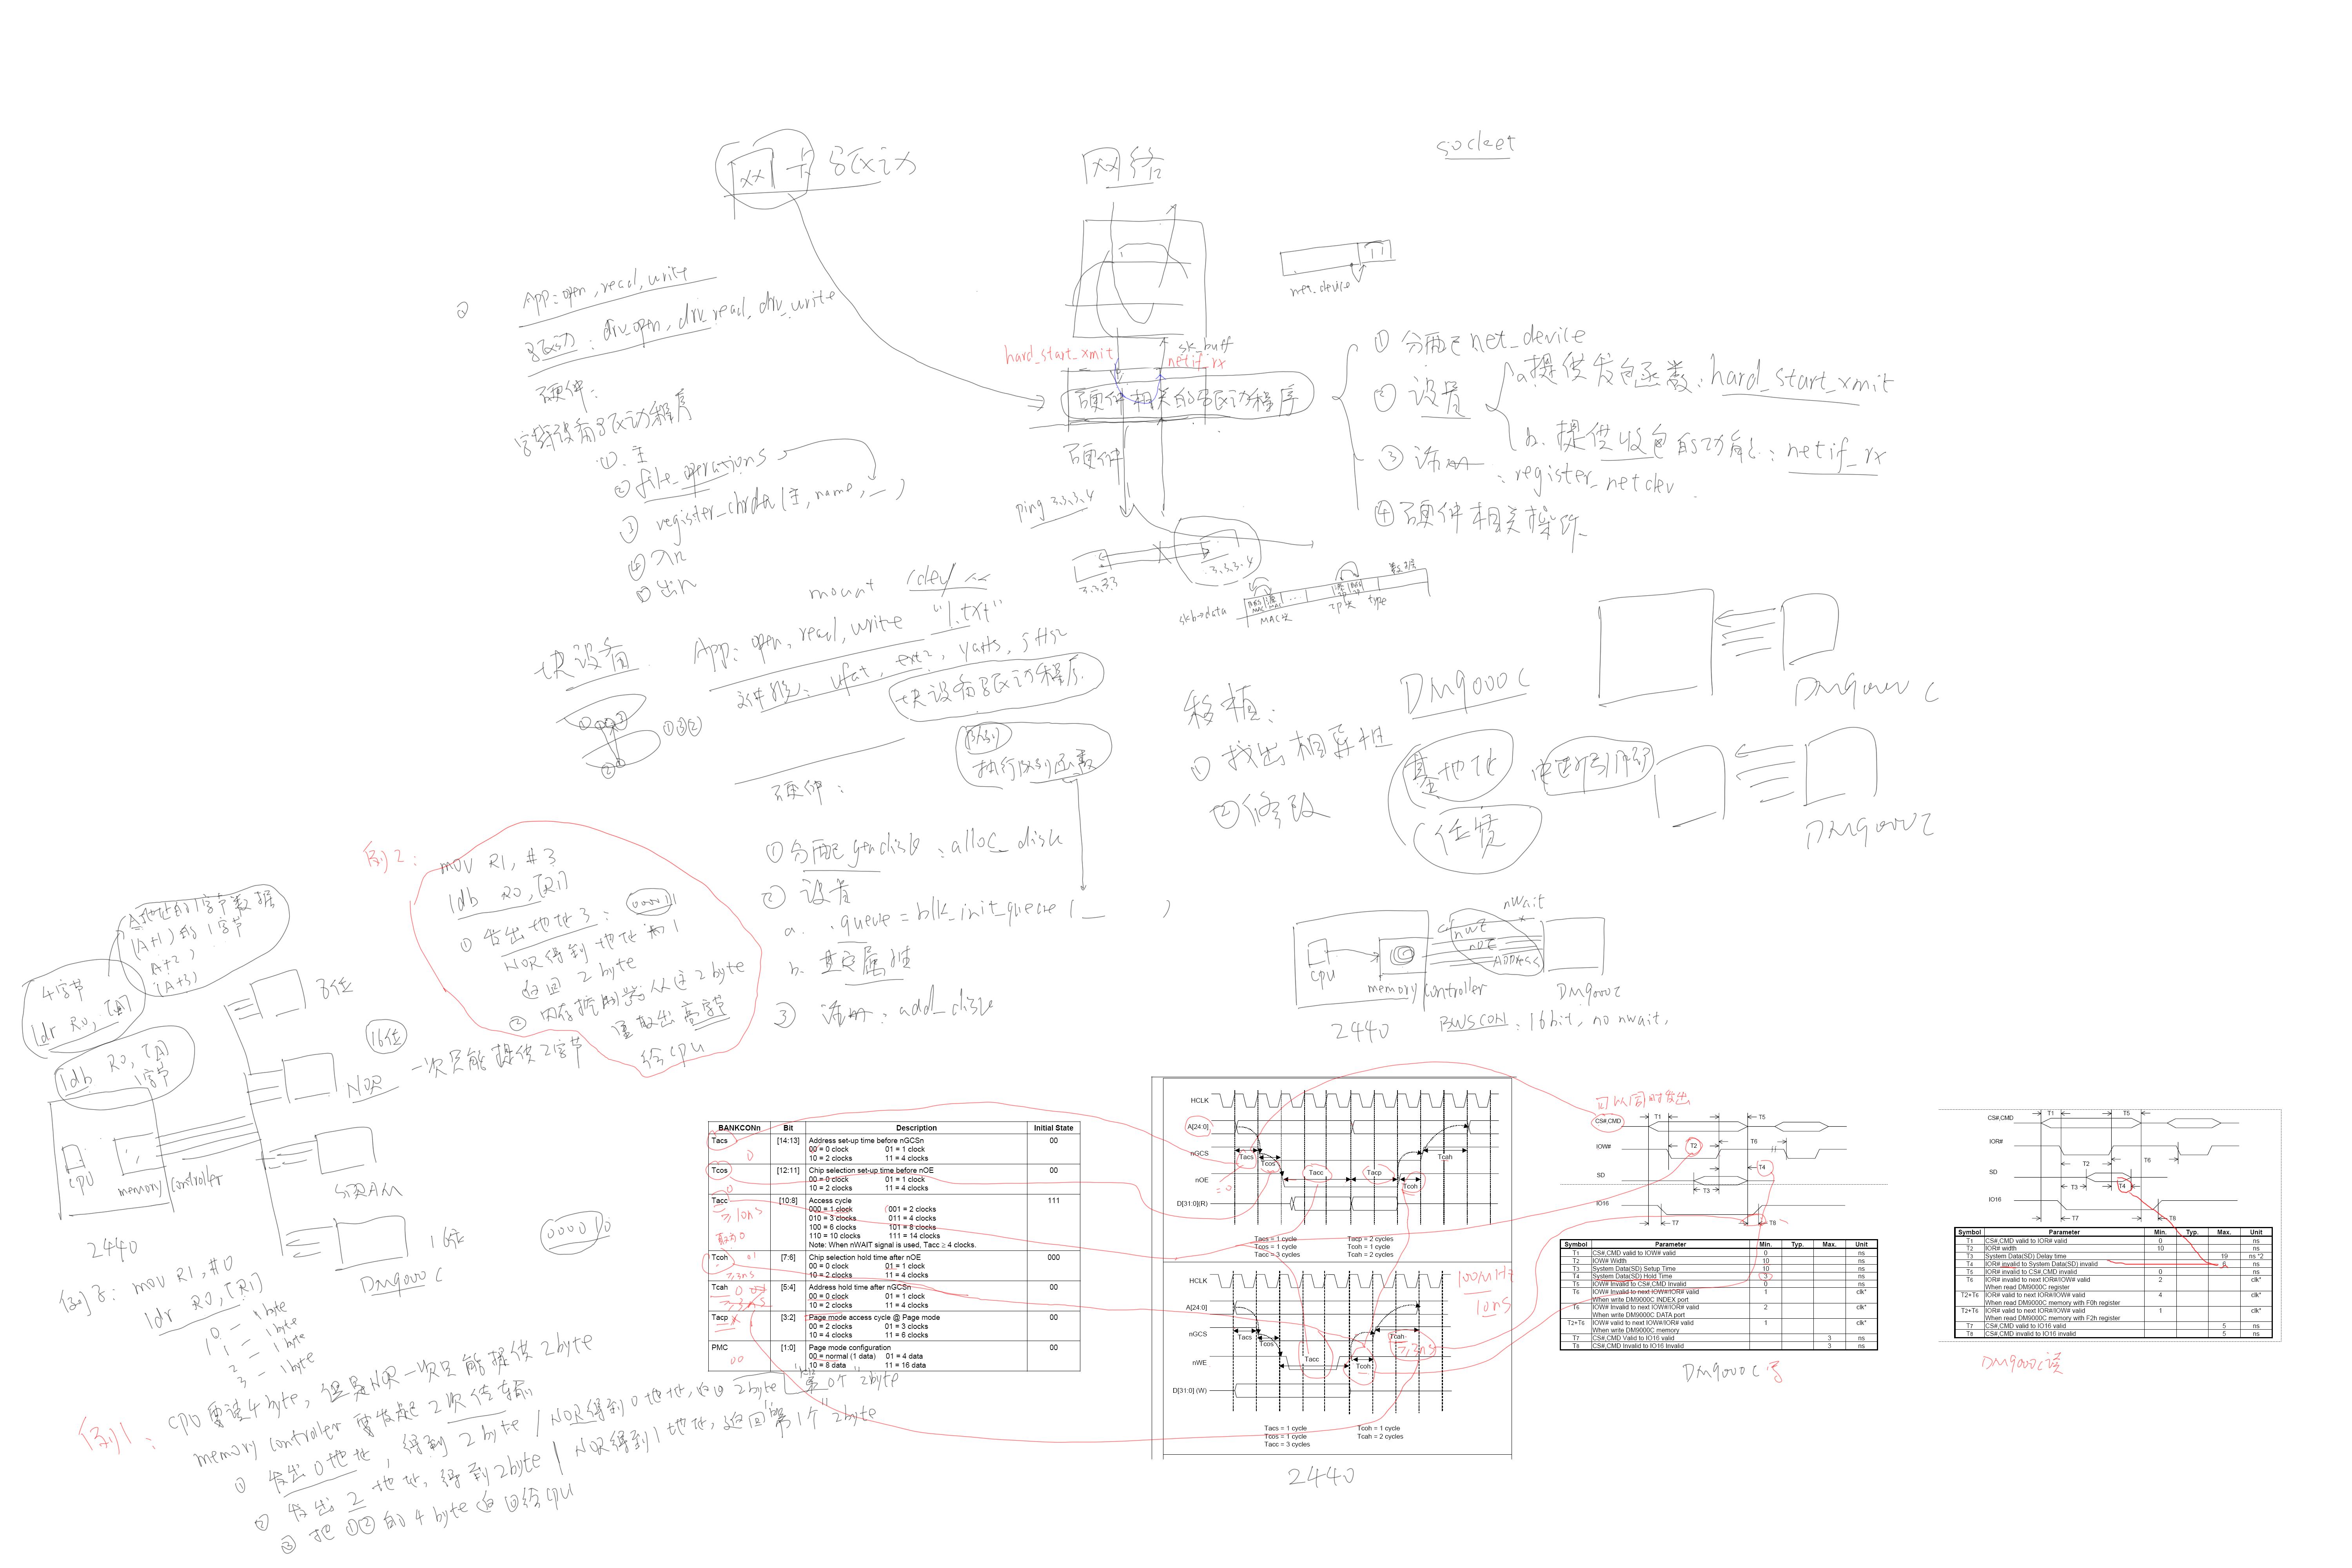 网卡驱动
网络
socket
App: open, read, write
驱动: drv_open, drv_read, drv_write
硬件:
字符设备驱动程序
①. 主
② file_operations
③ register_chrdev(主, name, _)
④ 入口
⑤ 出口
hard_start_xmit
sk_buff
netif_rx
硬件相关的驱动程序
硬件
net_device
① 分配 net_device
② 设置
a. 提供发包函数: hard_start_xmit
b. 提供收包的功能: netif_rx
③ 注册: register_netdev
④ 硬件相关操作
ping 3.3.3.4
3.3.3.3
3.3.3.4
skb->data
目的MAC
源MAC
...
MAC头
源IP
目的IP
IP头
type
数据
块设备
mount /dev/
App: open, read, write "1.txt"
文件系统: vfat, ext2, yaffs, jffs2
块设备驱动程序
①③②
队列
执行队列函数
硬件:
① 分配 gendisk: alloc_disk
② 设置
a. .queue = blk_init_queue( _ )
b. 其它属性
③ 注册: add_disk
移植:
DM9000C
① 找出相异性
② 修改
基地址
中断引脚
位宽
DM9000C
DM9000C
nwait
nWE
nOE
ADDRESS
CPU
memory controller
DM9000C
2440
BWSCON: 16bit, no nwait,
例2:
mov R1, #3
ldb R0, [R1]
① 发出地址3: 000011
NOR得到地址为1
返回 2 byte
② 内存控制器从这2 byte
里取出高字节
给CPU
A地址的1字节数据
(A+1)的1字节
(A+2)
(A+3)
4字节
ldr R0, [A]
ldb R0, [A]
1字节
8位
16位
NOR 一次只能提供2字节
CPU
memory controller
2440
SDRAM
DM9000C
16位
000010
例子: mov R1, #0
ldr R0, [R1]
0 — 1byte
1 — 1byte
2 — 1byte
3 — 1byte
例1: CPU要读4 byte, 但是NOR一次只能提供2byte
memory controller 要发起2次传输
① 发出0地址, 得到 2 byte / NOR得到0地址, 返回"第0个"2byte
② 发出2地址, 得到2byte / NOR得到1地址, 返回"第1个"2byte
③ 把①②的4 byte返回给CPU
BANKCONn Bit Description Initial State
Tacs [14:13] Address set-up time before nGCSn 00
00 = 0 clock 01 = 1 clock
10 = 2 clocks 11 = 4 clocks
0
Tcos [12:11] Chip selection set-up time before nOE 00
00 = 0 clock 01 = 1 clock
10 = 2 clocks 11 = 4 clocks
0
Tacc [10:8] Access cycle 111
000 = 1 clock 001 = 2 clocks
010 = 3 clocks 011 = 4 clocks
100 = 6 clocks 101 = 8 clocks
110 = 10 clocks 111 = 14 clocks
Note: When nWAIT signal is used, Tacc ≥ 4 clocks.
≥10ns
Tcoh [7:6] Chip selection hold time after nOE 000
00 = 0 clock 01 = 1 clock
10 = 2 clocks 11 = 4 clocks
01
≥3ns
Tcah [5:4] Address hold time after nGCSn 00
00 = 0 clock 01 = 1 clock
10 = 2 clocks 11 = 4 clocks
≥3ns
Tacp [3:2] Page mode access cycle @ Page mode 00
00 = 2 clocks 01 = 3 clocks
10 = 4 clocks 11 = 6 clocks
PMC [1:0] Page mode configuration 00
00 = normal (1 data) 01 = 4 data
10 = 8 data 11 = 16 data
00
HCLK
A[24:0]
nGCS
Tacs
Tcos
Tacc
Tacp
Tcah
nOE
=0
Tcoh
D[31:0](R)
Tacs = 1 cycle Tacp = 2 cycles
Tcos = 1 cycle Tcoh = 1 cycle
Tacc = 3 cycles Tcah = 2 cycles
HCLK
A[24:0]
nGCS
Tacs
Tcos
Tacc
Tcoh
Tcah
≥3ns
nWE
D[31:0] (W)
Tacs = 1 cycle Tcoh = 1 cycle
Tcos = 1 cycle Tcah = 2 cycles
Tacc = 3 cycles
100MHz
10ns
2440
可以同时发出
CS#,CMD
T1
T5
IOW#
T2
T6
SD
T3
T4
IO16
T7
T8
Symbol Parameter Min. Typ. Max. Unit
T1 CS#,CMD valid to IOW# valid 0 ns
T2 IOW# Width 10 ns
T3 System Data(SD) Setup Time 10 ns
T4 System Data(SD) Hold Time 3 ns
T5 IOW# Invalid to CS#,CMD Invalid 0 ns
T6 IOW# Invalid to next IOW#/IOR# valid 1 clk*
When write DM9000C INDEX port
T6 IOW# Invalid to next IOW#/IOR# valid 2 clk*
When write DM9000C DATA port
T2+T6 IOW# valid to next IOW#/IOR# valid 1 clk*
When write DM9000C memory
T7 CS#,CMD Valid to IO16 valid 3 ns
T8 CS#,CMD Invalid to IO16 Invalid 3 ns
DM9000C写
CS#,CMD
T1
T5
IOR#
T2
T6
SD
T3
T4
IO16
T7
T8
Symbol Parameter Min. Typ. Max. Unit
T1 CS#,CMD valid to IOR# valid 0 ns
T2 IOR# width 10 ns
T3 System Data(SD) Delay time 19 ns *2
T4 IOR# invalid to System Data(SD) invalid 6 ns
T5 IOR# invalid to CS#,CMD invalid 0 ns
T6 IOR# invalid to next IOR#/IOW# valid 2 clk*
When read DM9000C register
T2+T6 IOR# valid to next IOR#/IOW# valid 4 clk*
When read DM9000C memory with F0h register
T2+T6 IOR# valid to next IOR#/IOW# valid 1 clk*
When read DM9000C memory with F2h register
T7 CS#,CMD valid to IO16 valid 5 ns
T8 CS#,CMD invalid to IO16 invalid 5 ns
DM9000C读